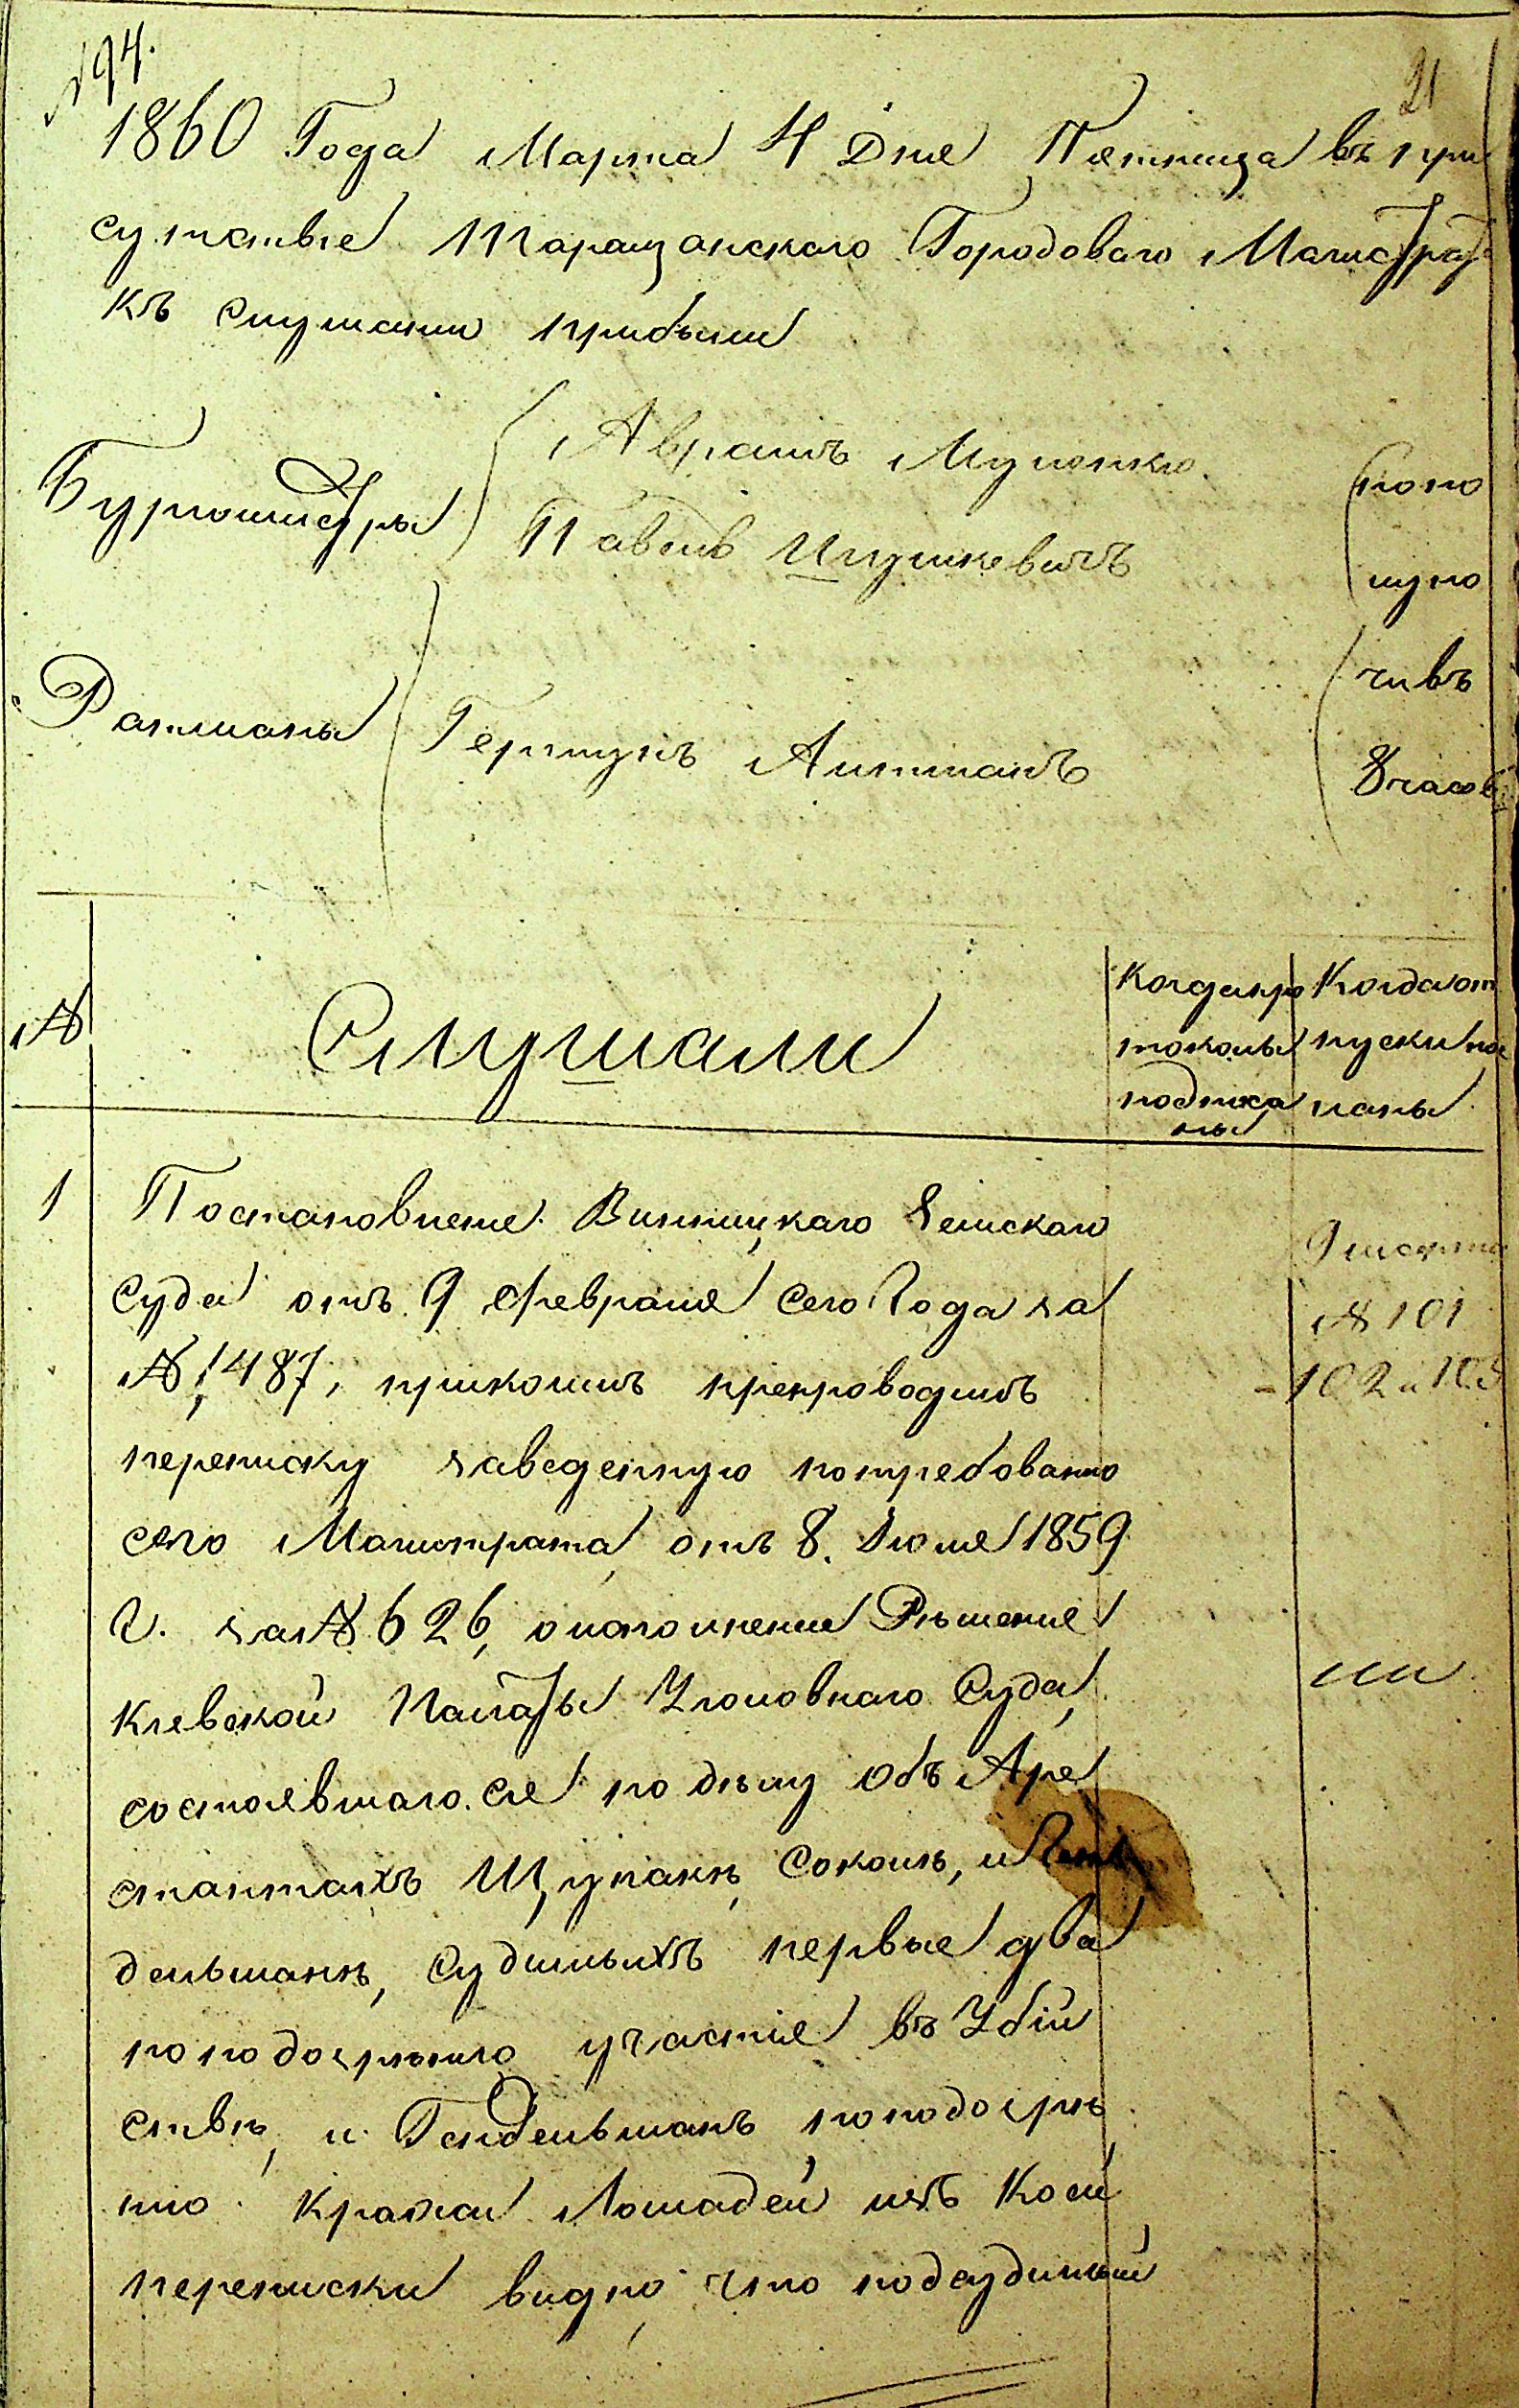 № 94.
21
1860 Года Марта 4 Дня Пятница въ при
сутствіе Таращанскаго Городоваго Магистрата
къ слушанію прибыли
Бургомистры
Авраамъ
Павелъ
попо
лудно
Ратманы
Антманъ
чивъ
8 часов
№
Слушали
Когда про
токолы
подписа
ны
Когда от
пуски по
маны
1 Постановленіе Винницкаго Земскаго
Суда отъ 9 февраля сего Года за
№ 1487, при коемъ препроводилъ
переписку заведенную по требованію
сего Магистрата, отъ 8. Іюля 1859
г. за № 626, о исполненіи Рѣшенія
Кіевской Палаты Уголовнаго Суда,
состоявшагося по дѣлу объ Аре
стантахъ Щупакѣ, Соколѣ, и Ген
дельманѣ, Судимыхъ первые два
по подозрѣнію участія въ Убій
ствѣ, и Гендельманъ, по подозрѣ
нію кражи Лошадей изъ коей
переписки видно, что подсудимый
9 марта
№ 101
102 и 103